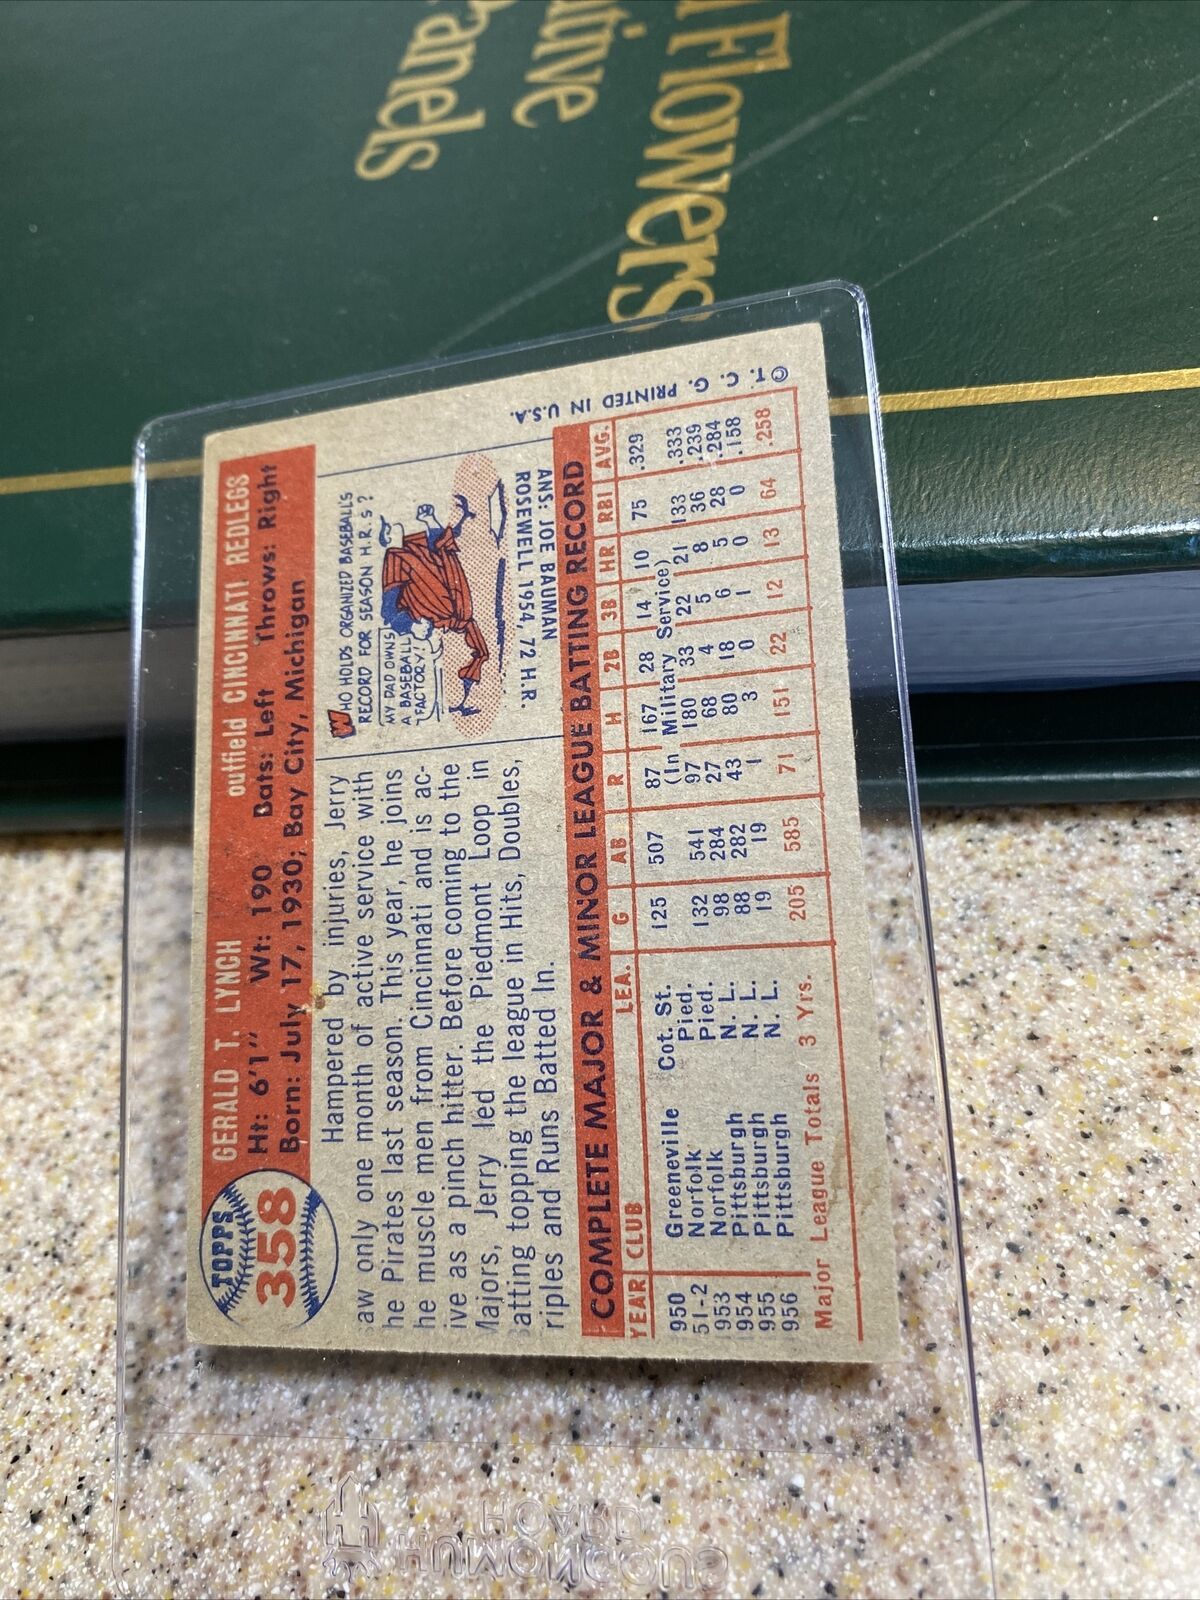 n Flowers
tive
Panels
TOPPS
358
GERALD T. LYNCH outfield CINCINNATI REDLEGS
Ht: 6'1" Wt: 190 Bats: Left Throws: Right
Born: July 17, 1930; Bay City, Michigan
Hampered by injuries, Jerry
aw only one month of active service with
he Pirates last season. This year, he joins
he muscle men from Cincinnati and is ac-
ive as a pinch hitter. Before coming to the
Majors, Jerry led the Piedmont Loop in
Batting topping the league in Hits, Doubles,
riples and Runs Batted In.
WHO HOLDS ORGANIZED BASEBALLS
RECORD FOR SEASON H.R.s ?
MY DAD OWNS
A BASEBALL
FACTORY!
ANS: JOE BAUMAN
ROSEWELL 1954, 72 H.R.
COMPLETE MAJOR & MINOR LEAGUE BATTING RECORD
YEAR CLUB LEA. G AB R H 2B 3B HR RBI AVG.
950 Greeneville Cot. St. 125 507 87 167 28 14 10 75 .329
51-2 Norfolk (In Military Service)
953 Norfolk Pied. 132 541 97 180 33 22 21 133 .333
1954 Pittsburgh N. L. 98 284 27 68 4 5 8 36 .239
955 Pittsburgh N. L. 88 282 43 80 18 6 5 28 .284
956 Pittsburgh N. L. 19 19 1 3 0 1 0 0 .158
Major League Totals 3 Yrs. 205 585 71 151 22 12 13 64 .258
© T. C. G. PRINTED IN U.S.A.